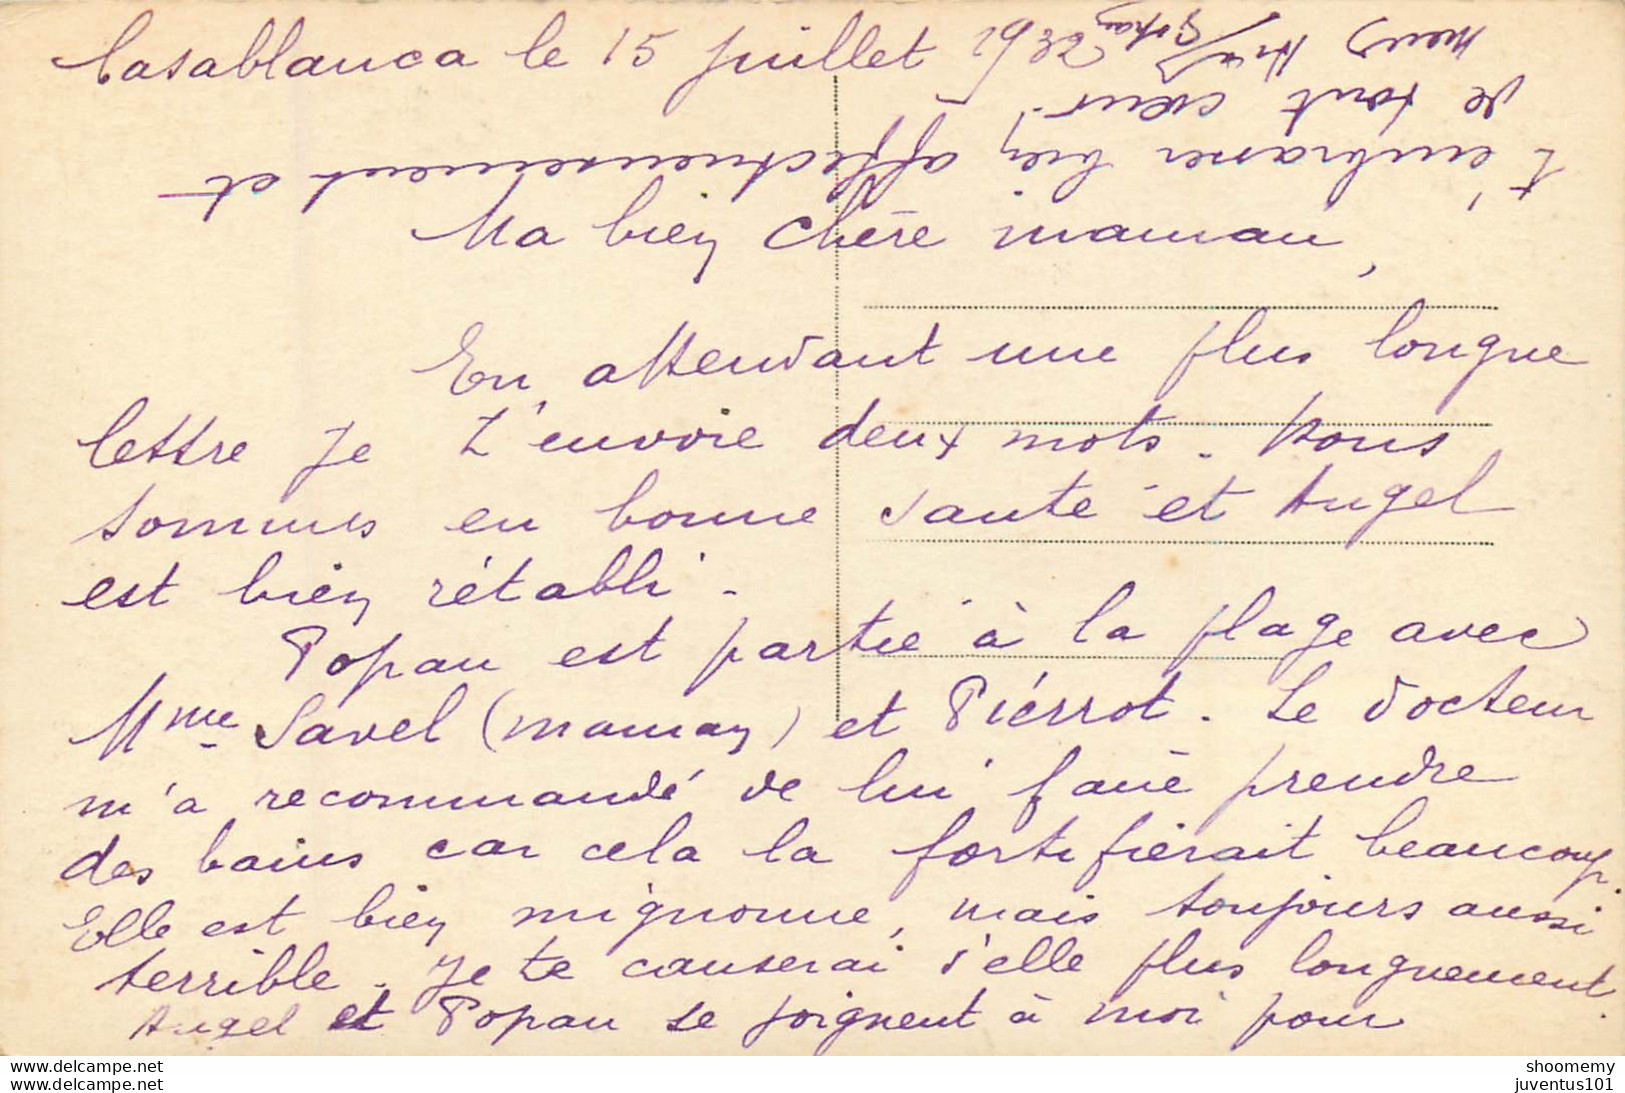 Casablanca le 15 juillet
Ma bien chère maman,
En attendant une plus longue
lettre je t'envoie deux mots. Nous
sommes en bonne santé et Angel
est bien rétabli.
Popau est partie à la plage avec
Mme Savel (maman) et Piérrot. Le docteur
m'a recommandé de lui faire prendre
des bains car cela la fortifierait beaucoup.
Elle est bien mignonne, mais toujours aussi
terrible. Je te causerai d'elle plus longuement.
Angel et Popau se joignent à moi pour
t'embrasser bien affectueusement et
de tout cœur.
shoomemy
juventus101